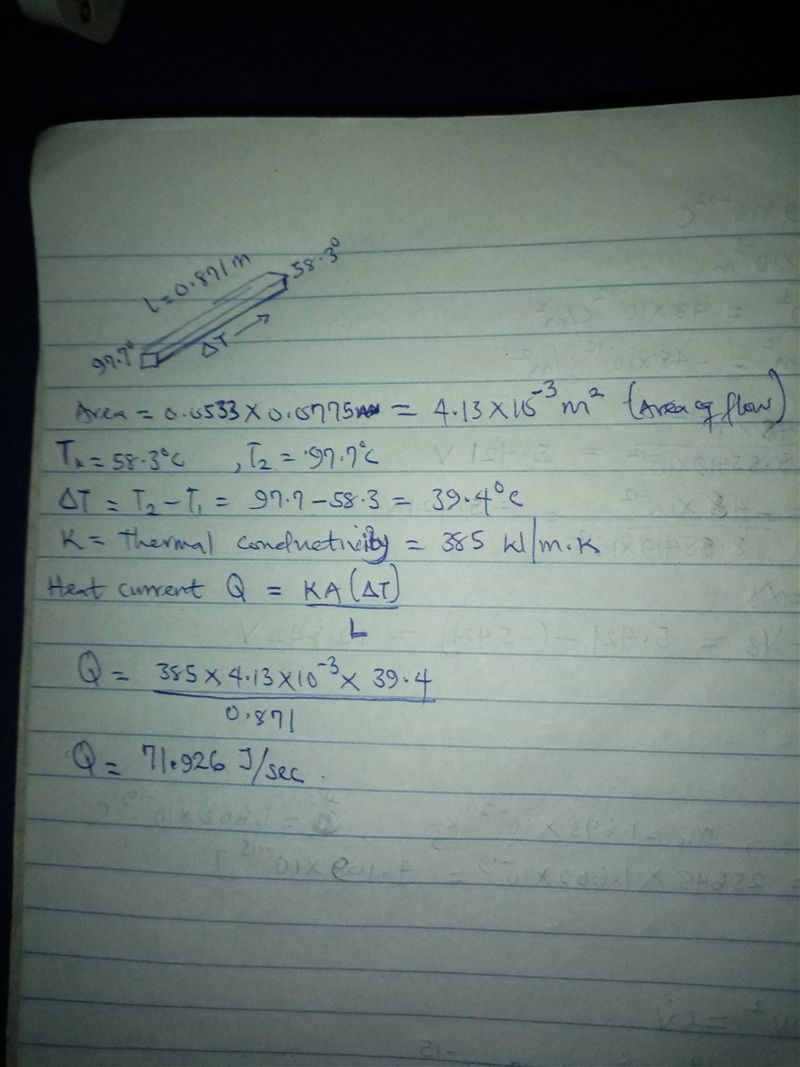 L = 0.871m
58.3°
97.7°
ΔT →
Area = 0.0533 × 0.0775 = 4.13 × 10⁻³ m² (Area of flow)
T₁ = 58.3°C , T₂ = 97.7°C
ΔT = T₂ – T₁ = 97.7 – 58.3 = 39.4°C
K = Thermal conductivity = 385 W/m.K
Heat current Q = KA(ΔT)
L
Q = 385 × 4.13 × 10⁻³ × 39.4
0.871
Q = 71.926 J/sec.